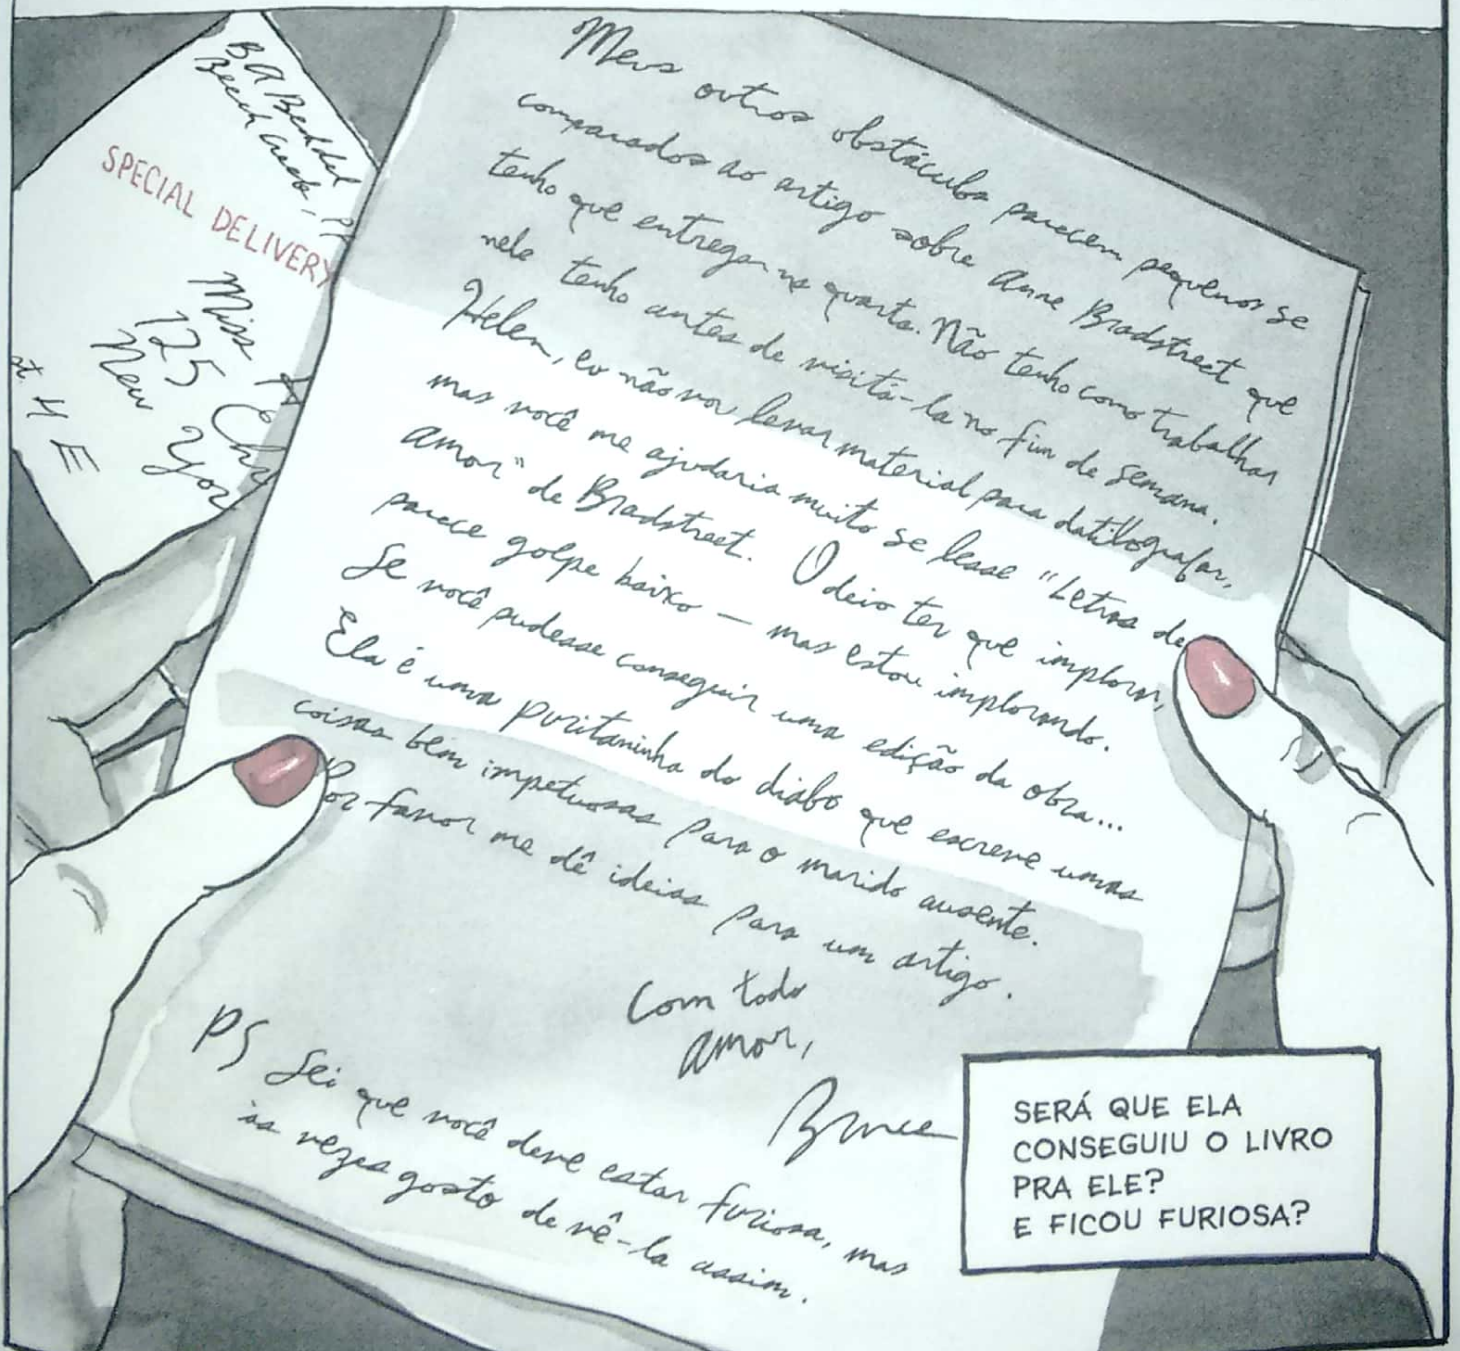 B A Bechdel
Beech Creek, PA
SPECIAL DELIVERY
Miss
125
New Yor
st. H E
Meus outros obstáculos parecem pequenos se
comparados ao artigo sobre Anne Bradstreet que
tenho que entregar na quarta. Não tenho como trabalhar
nele tenho antes de visitá-la no fim de semana.
Helen, eu não vou levar material para datilografar,
mas você me ajudaria muito se lesse "Letras de
amor" de Bradstreet. Odeio ter que implorar,
parece golpe baixo — mas estou implorando.
Se você pudesse conseguir uma edição da obra...
Ela é uma puritaninha do diabo que escreve umas
coisas bem impetuosas para o marido ausente.
Por favor me dê ideias para um artigo.
Com todo
amor,
Bruce
PS Sei que você deve estar furiosa, mas
às vezes gosto de vê-la assim.
SERÁ QUE ELA
CONSEGUIU O LIVRO
PRA ELE?
E FICOU FURIOSA?